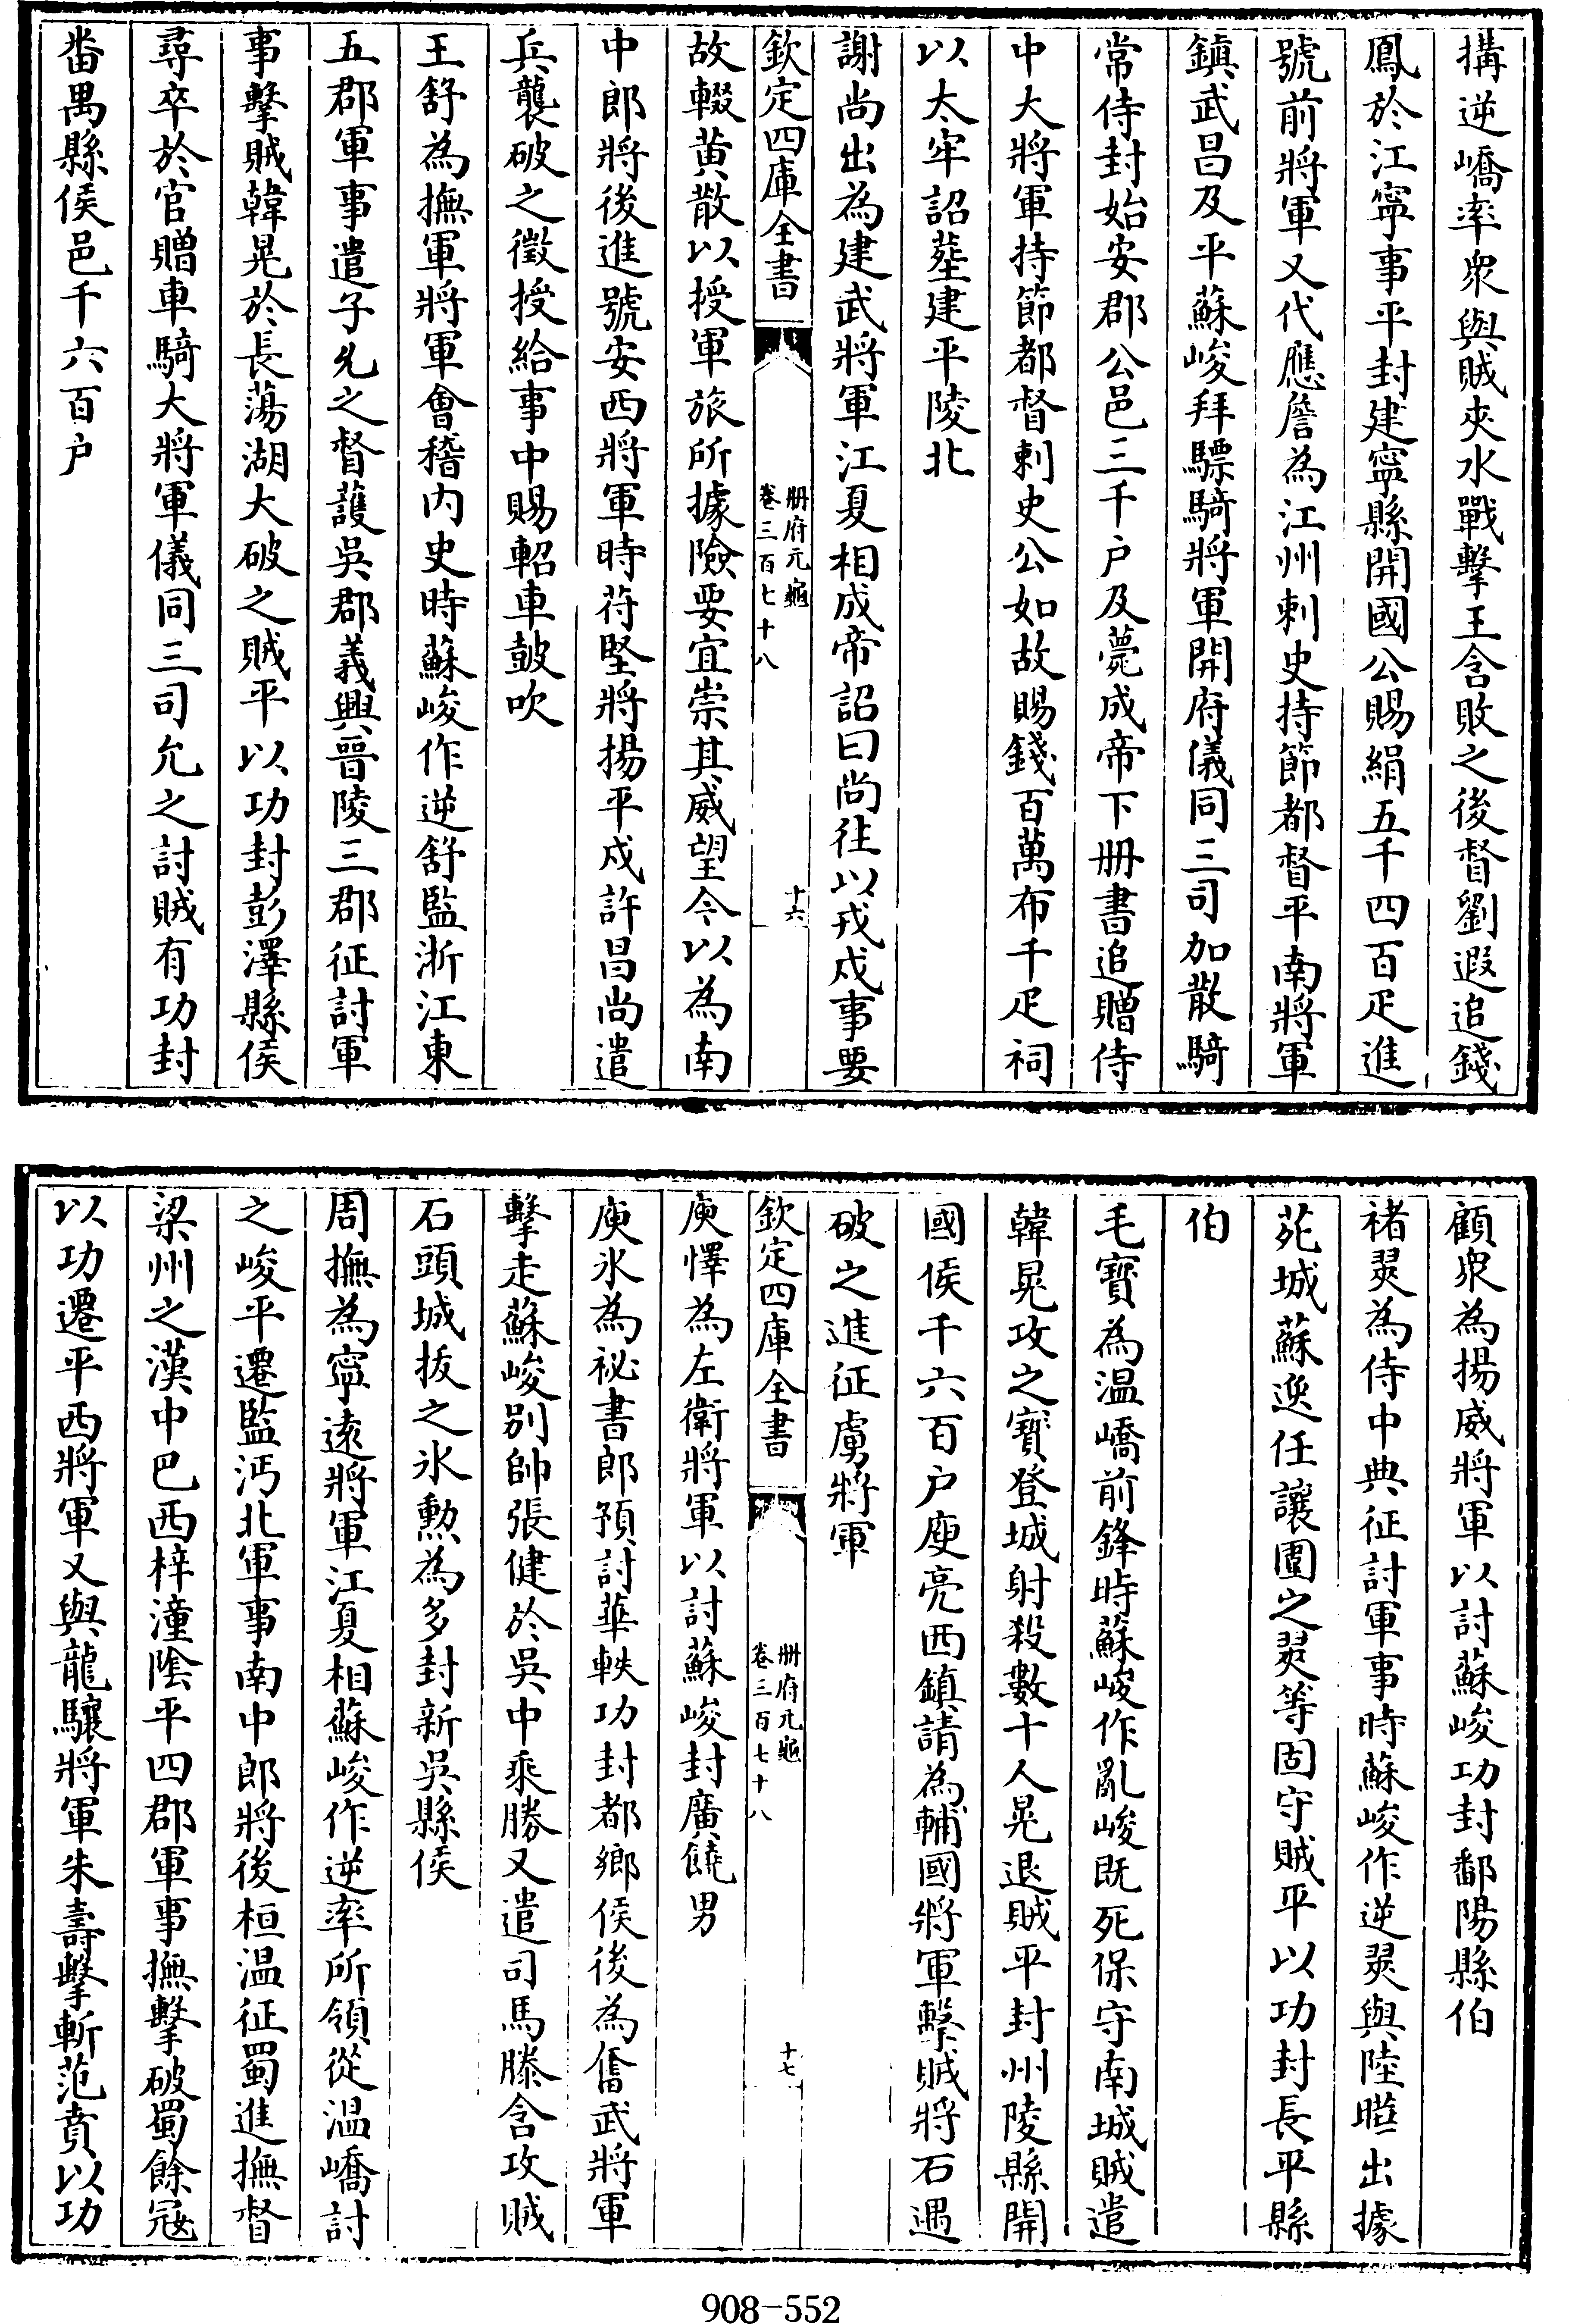 搆逆嶠率衆與賊夾水戰擊王含敗之後督劉遐追錢
鳳於江寧事平封建寧縣開國公賜絹五千四百疋進
號前將軍又代應詹為江州刺史持節都督平南將軍
鎮武昌及平蘇峻拜驃騎將軍開府儀同三司加散騎
常侍封始安郡公邑三千户及薨成帝下冊書追贈侍
中大將軍持節都督刺史公如故賜錢百萬布千疋祠
以太牢詔塟建平陵北
謝尚出為建武將軍江夏相成帝詔曰尚往以戎戍事要
欽定四庫全書
冊府元龜
卷三百七十八
十六
故輟黄散以授軍旅所據險要宜崇其威望今以為南
中郎將後進號安西將軍時苻堅將揚平戍許昌尚遣
兵襲破之徵授給事中賜軺車鼓吹
王舒為撫軍將軍會稽内史時蘇峻作逆舒監浙江東
五郡軍事遣子允之督護吳郡義興晉陵三郡征討軍
事擊賊韓晃於長蕩湖大破之賊平以功封彭澤縣侯
尋卒於官贈車騎大將軍儀同三司允之討賊有功封
番禺縣侯邑千六百户
顧衆為揚威將軍以討蘇峻功封鄱陽縣伯
褚翜為侍中典征討軍事時蘇峻作逆翜與陸曄出據
苑城蘇逸任讓圍之翜等固守賊平以功封長平縣
伯
毛寶為温嶠前鋒時蘇峻作亂峻既死保守南城賊遣
韓晃攻之寶登城射殺數十人晃退賊平封州陵縣開
國侯千六百户庾亮西鎮請為輔國將軍擊賊將石遇
破之進征虜將軍
欽定四庫全書
冊府元龜
卷三百七十八
十七
庾懌為左衛將軍以討蘇峻封廣饒男
庾氷為祕書郎預討華軼功封都鄉侯後為奮武將軍
擊走蘇峻别帥張健於吳中乘勝又遣司馬滕含攻賊
石頭城拔之氷勲為多封新吳縣侯
周撫為寧逺將軍江夏相蘇峻作逆率所領從温嶠討
之峻平遷監沔北軍事南中郎將後桓温征蜀進撫督
梁州之漢中巴西梓潼隂平四郡軍事撫擊破蜀餘冦
以功遷平西將軍又與龍驤將軍朱壽擊斬范賁以功
908-552